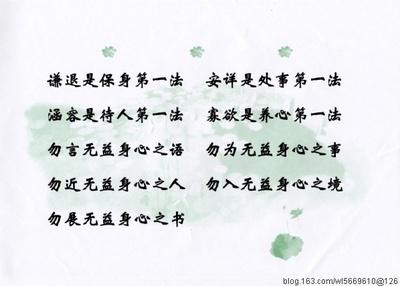 谦退是保身第一法 安详是处事第一法
涵容是待人第一法 寡欲是养心第一法
勿言无益身心之语 勿为无益身心之事
勿近无益身心之人 勿入无益身心之境
勿展无益身心之书
blog.163.com/wl5669610@126